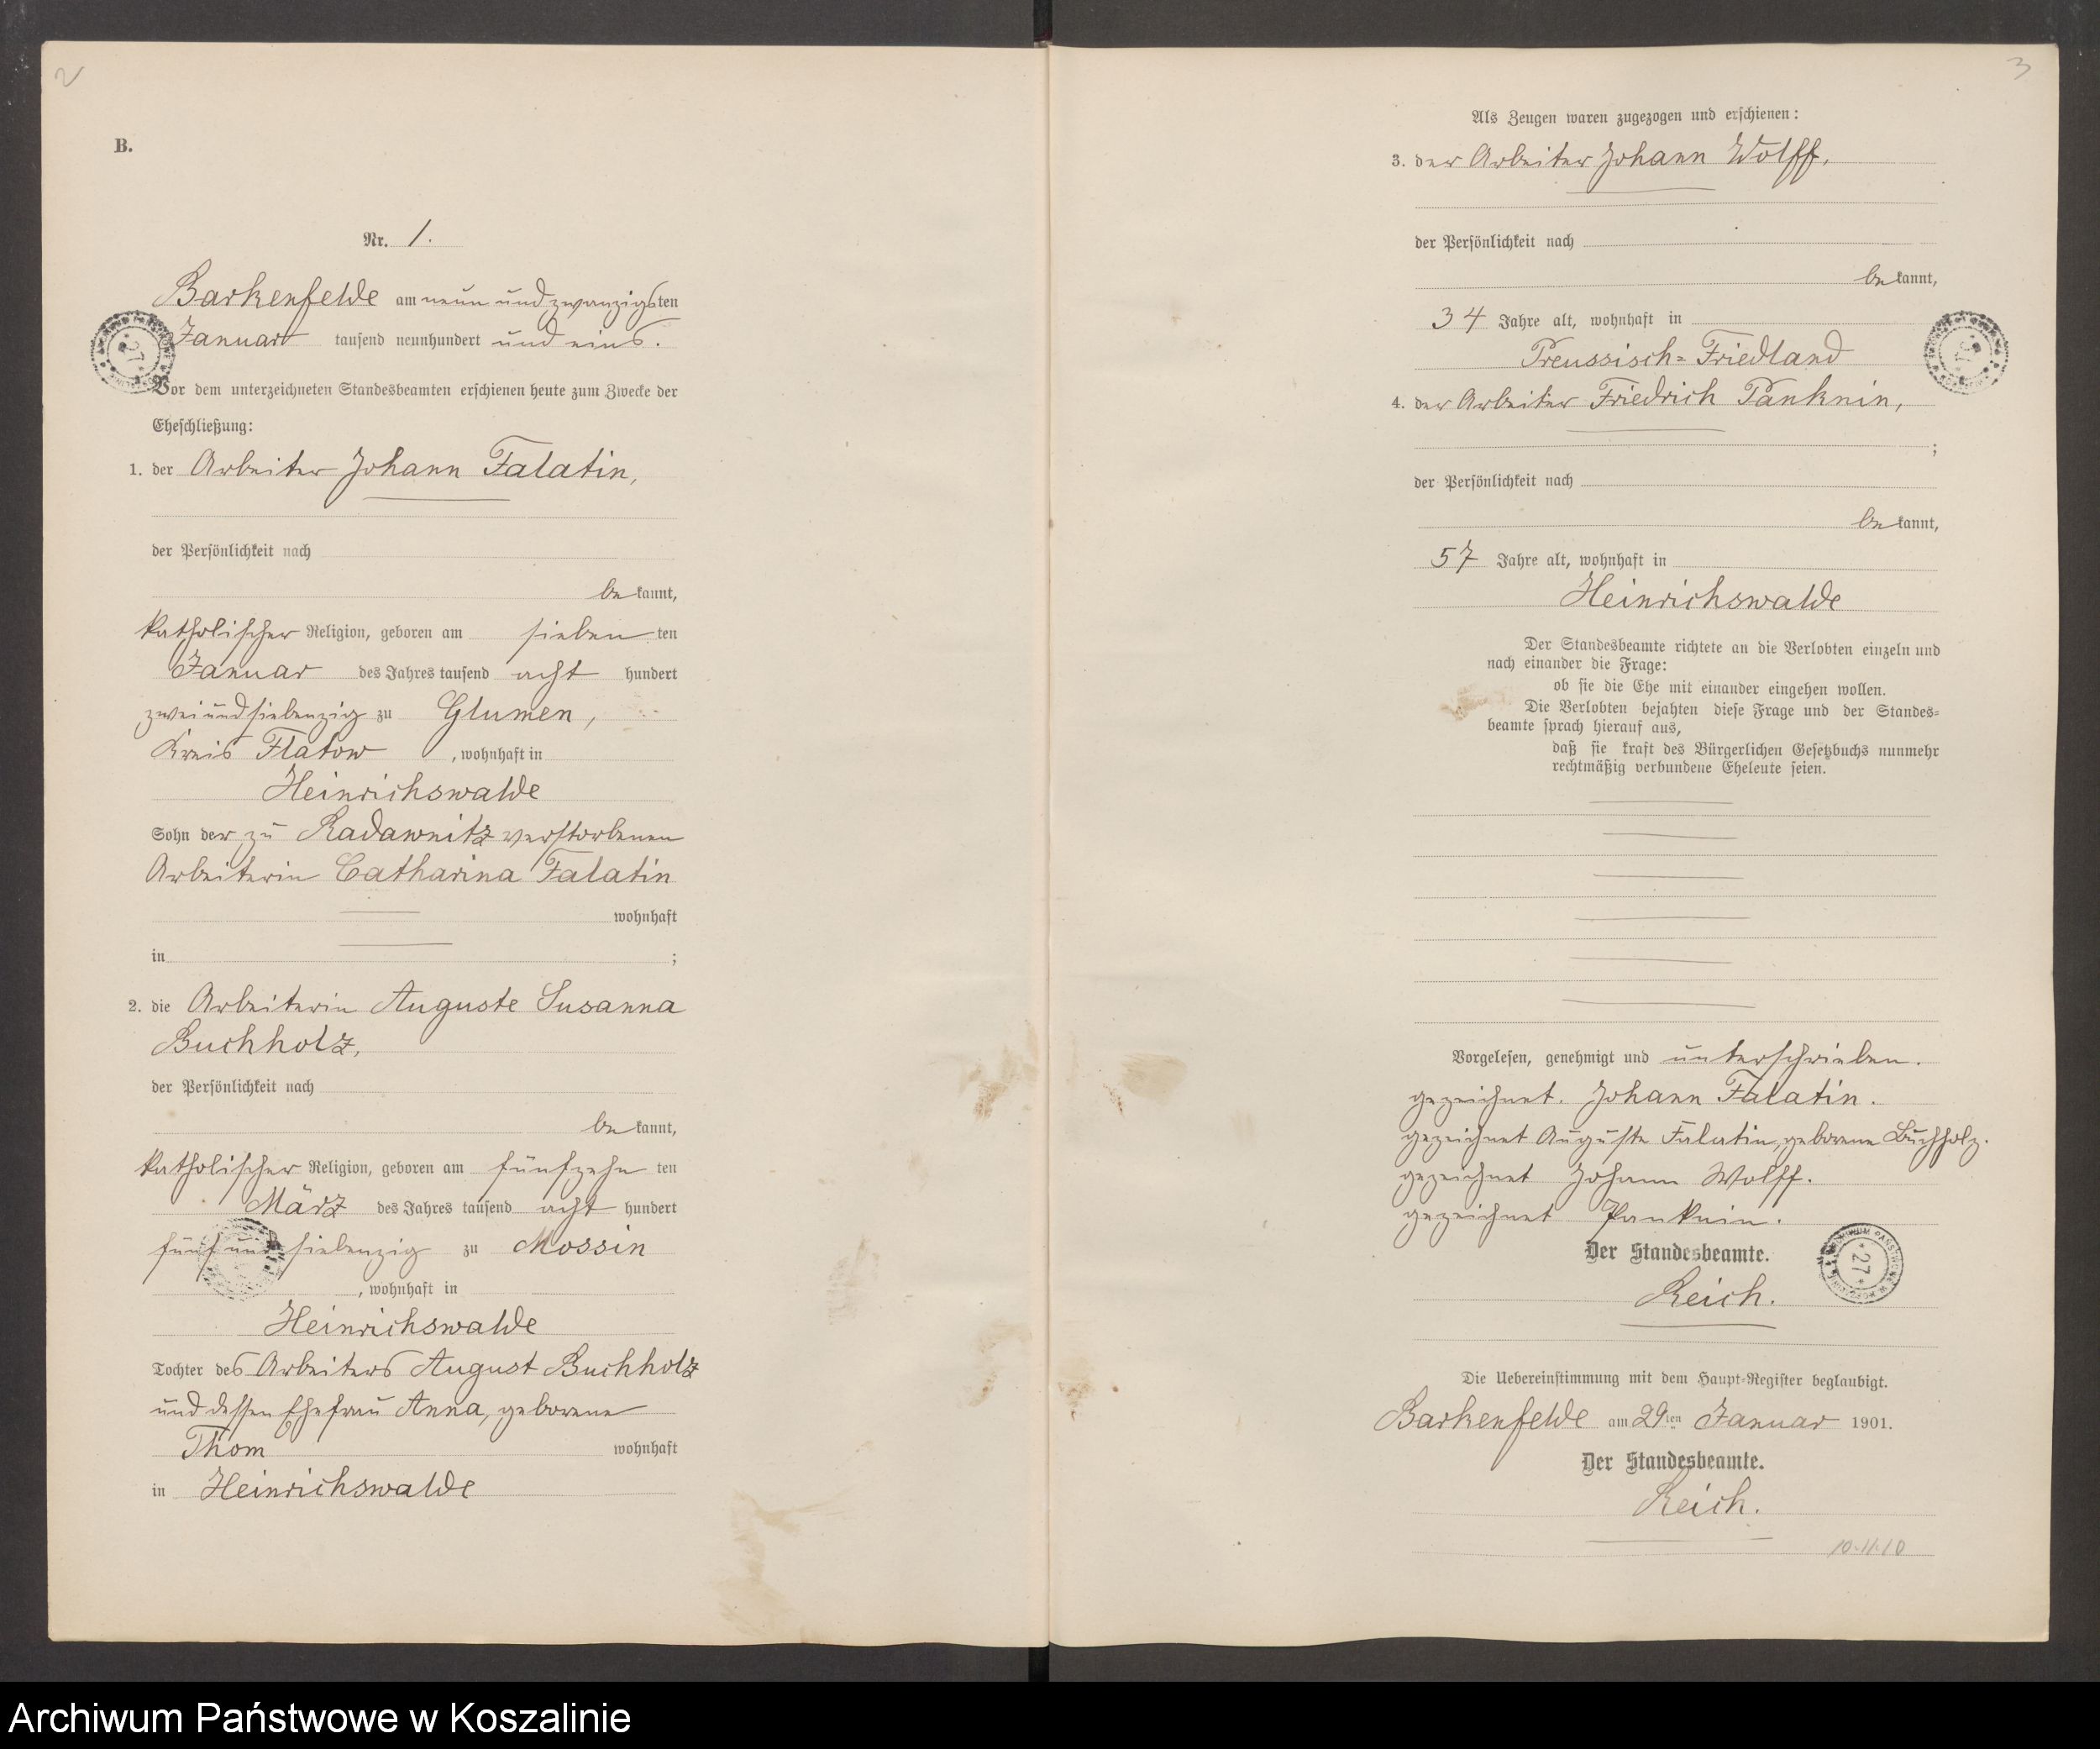 2
B.
Nr. 1.
Barkenfelde am neun und zwanzigsten
Januar tausend neunhundert und eins.
Vor dem unterzeichneten Standesbeamten erschienen heute zum Zwecke der
Eheschließung:
1. der Arbeiter Johann Falatin,
der Persönlichkeit nach
bekannt,
katholischer Religion, geboren am siebenten
Januar des Jahres tausend acht hundert
zwei und siebenzig zu Glumen,
Kreis Flatow, wohnhaft in
Heinrichswalde
Sohn der zu Radawnitz verstorbenen
Arbeiterin Catharina Falatin
wohnhaft
in ;
2. die Arbeiterin Auguste Susanna
Buchholz,
der Persönlichkeit nach
bekannt,
katholischer Religion, geboren am fünfzehnten
März des Jahres tausend acht hundert
fünf und siebenzig zu Mossin
, wohnhaft in
Heinrichswalde
Tochter des Arbeiters August Buchholz
und dessen Ehefrau Anna, geborene
Thom wohnhaft
in Heinrichswalde
3
Als Zeugen waren zugezogen und erschienen:
3. der Arbeiter Johann Wolff,
der Persönlichkeit nach
bekannt,
34 Jahre alt, wohnhaft in
Preussisch=Friedland
4. der Arbeiter Friedrich Panknin,
;
der Persönlichkeit nach
bekannt,
57 Jahre alt, wohnhaft in
Heinrichswalde
Der Standesbeamte richtete an die Verlobten einzeln und
nach einander die Frage:
ob sie die Ehe mit einander eingehen wollen.
Die Verlobten bejahten diese Frage und der Standes=
beamte sprach hierauf aus,
daß sie kraft des Bürgerlichen Gesetzbuchs nunmehr
rechtmäßig verbundene Eheleute seien.
Vorgelesen, genehmigt und unterschrieben.
gezeichnet. Johann Falatin.
gezeichnet Auguste Falatin, geborene Buchholz.
gezeichnet Johann Wolff.
gezeichnet Panknin.
Der Standesbeamte.
ARCHIWUM PAŃSTWOWE W KOSZALINIE * 27 *
Reich.
Die Uebereinstimmung mit dem Haupt=Register beglaubigt.
Barkenfelde am 29ten Januar 1901.
Der Standesbeamte.
Reich.
10.11.10
Archiwum Państwowe w Koszalinie